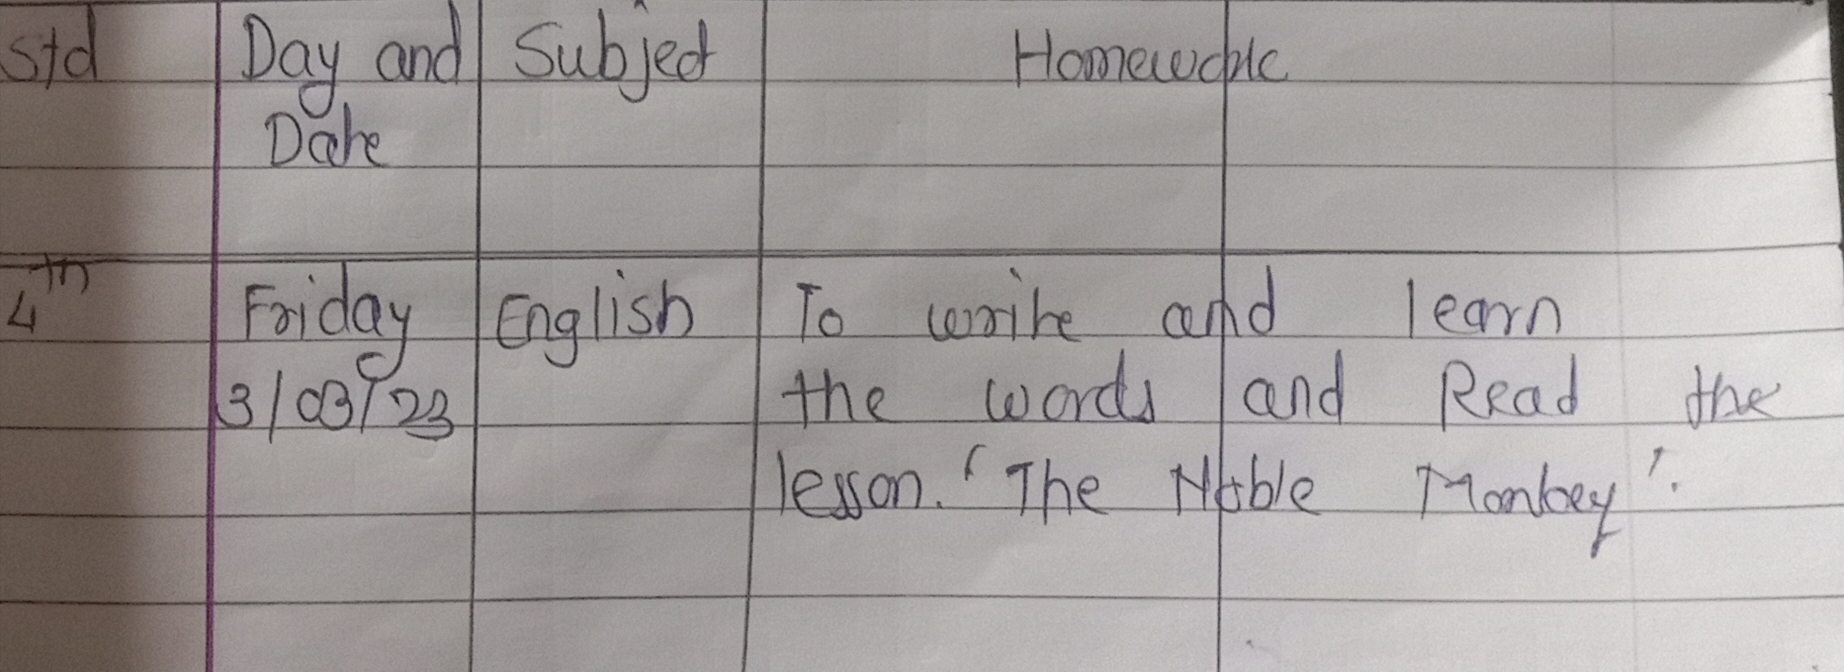 Std Day and Subject Homework
Date
4th Friday English To write and learn
3/03/23 the words and Read the
lesson. 'The Noble Monkey'.